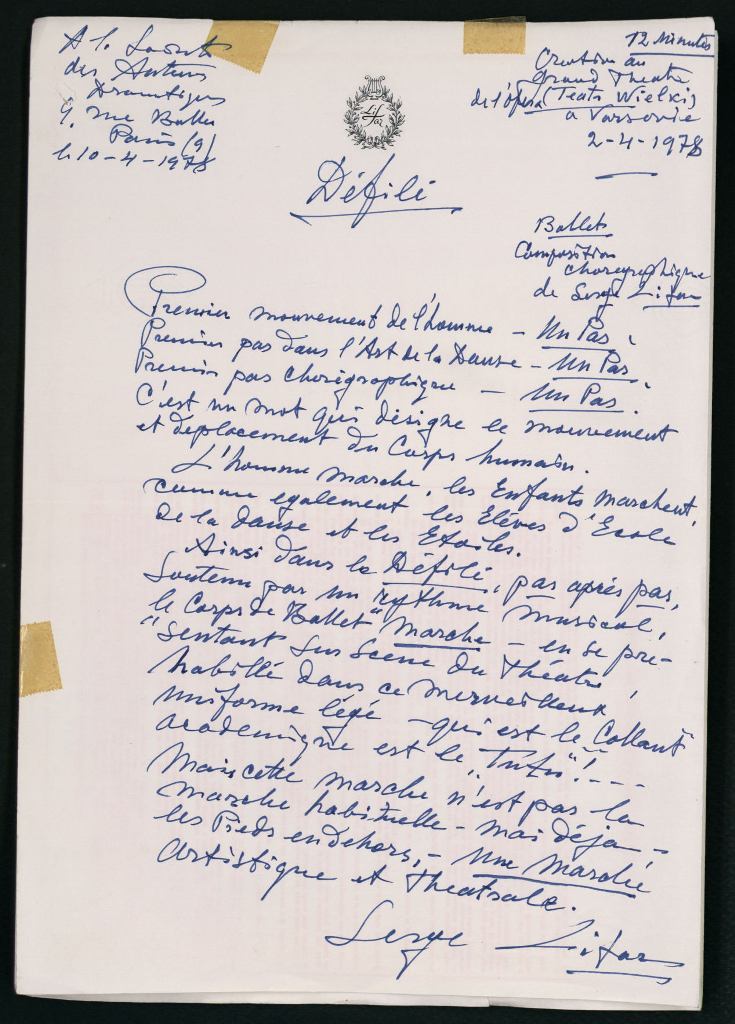 A l. Société
des Auteurs
Dramtiques
9, rue Ballu
Paris (9)
le 10-4-1978
12 Minutes
Creation au
Grand Theatre
de l'Opéra (Teatr Wielki)
a Varsovie
2-4-1978
Lifar
Défilé
Ballets
Composition
choregraphique
de Serge Lifar
Premier mouvement de l'homme – Un Pas,
Premier pas dans l'Art de la Danse – Un Pas,
Premier pas chorégraphique – Un Pas.
C'est un mot qui désigne le mouvement
et déplacement du Corps humain.
L'homme marche, les Enfants marchent,
comme egalement les Elèves d'Ecole
de la danse et les Etoiles.
Ainsi dans le Défilé, pas après pas,
soutenu par un rythme musical,
le Corps de Ballet "marche – en se pré-
"sentant sur scene du Théatre,
habillé dans ce merveilleux
uniforme légé – qui est le "Collant"
academique est le "Tutu"! - - -
Mais cette marche n'est pas la
marche habituelle – mai déja –
les Pieds en dehors, – Une Marche
Artistique et Theatrale.
Serge Lifar